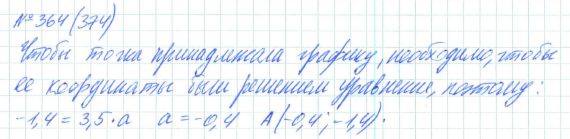 №364(374)
Чтобы точка принадлежала графику, необходимо, чтобы
ее координаты были решением уравнения, поэтому:
-1,4 = 3,5·a a = -0,4 A(-0,4; -1,4).